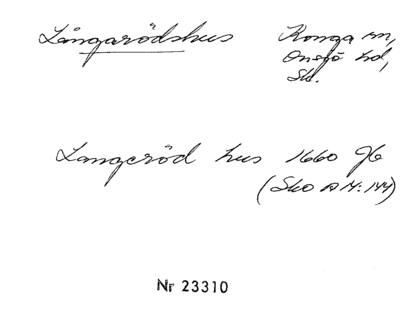 Långarödshus Konga sn,
Onsjö hd,
Sk.
Langeröd hus 1660 Jb
(Sko N:144)
Nr 23310